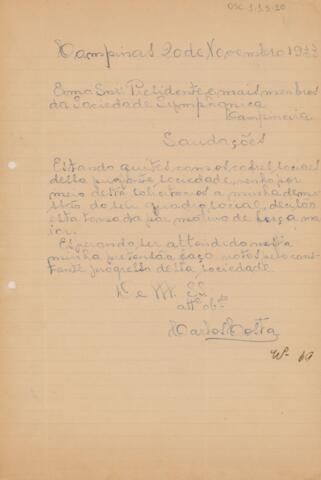 OSC 1.1.5.20
Campinas 20 de Novembro 19
Exmo Snr. Presidente e mais membros
da Sociedade Symphonica
Campineira
Saudações
Estando quites com os cofres sociaes
desta sociedade, venho por
meio desta solicitar-vos a minha demis-
são do seu quadro social, decisão
esta tomada por motivo de força ma-
ior.
Esperando ser attendido nesta
minha pretensão faço votos pelo cons-
tante progresso desta sociedade.
De VV. SS.
attº obdº
Carlos Cotta
Nº 69